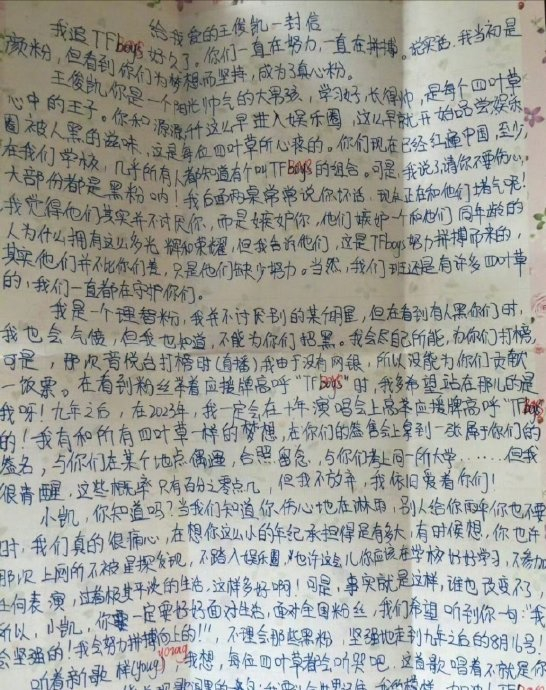 给我爱的王俊凯一封信
我追TFboys好久了。你们一直在努力,一直在拼搏。说实话,我当初是
颜粉,但看到你们为梦想而坚持,成为了真心粉。
王俊凯,你是一个阳光帅气的大男孩,学习好,长得帅,是每个四叶草
心中的王子。你和源源、千这么早进入娱乐圈,这么早就开始品尝娱乐
圈被人黑的滋味,这是每位四叶草所心疼的。你们现在已经红遍中国,至少
在我们学校,几乎所有人都知道有个叫TFboys的组合。可是,我说了请你不要伤心,
大部份都是黑粉呐!我后面两桌常常说你坏话,现从正在和他们堵气呢!
我觉得他们其实并不讨厌你,而是嫉妒你,他们嫉妒一个和他们同年龄的
人为什么拥有这么多光辉和荣耀,但我告诉他们,这是TFboys努力拼搏而来的,
其实他们并不比你们差,只是他们缺少努力。当然,我们班还是有许多四叶草
的,我们一直都在守护你们。
我是一个理智粉,我并不讨厌别的某个明星,但在看到有人黑你们时,
我也会气愤,但我也知道,不能为你们招黑。我会尽自己所能,为你们打榜,
可是,那次音悦台打榜时(直播)我由于没有网银,所以没能为你们贡献
一饭票。在看到粉丝举着应援牌高呼“TFboys”时,我多希望站在那儿的是
我呀!九年之后,在2023年,我一定会在十年演唱会上高举应援牌高呼“TFboys”
的!我有和所有四叶草一样的梦想,在你们的签售会上拿到一张属于你们的
签名,与你们在某个地点偶遇,合照留念,与你们考上同一所大学……但我
很清醒,这些概率只有百分之零点几,但我不放弃,我依旧爱着你们!
小凯,你知道吗?当我们知道你伤心地在淋雨,别人给你雨伞你也不要
时,我们真的很痛心,在想你这么小的年纪承担得是有多大,有时候想,你也许
那次上网所不被星探发现,不踏入娱乐圈,也许这会儿你应该在学校好好学习,不参加
任何表演,过着很平淡的生活,这样多好啊!可是,事实就是这样,谁也改变不了
所以,小凯,你一定要好好面对生活,面对全国粉丝,我们希望听到你一句:“我
会坚强的!我会努力拼搏向上的!!,不理会那些黑粉,坚强地走到九年之后的8月6号!
听着新歌《样(young)》我想,每位四叶草都会听哭吧,这首歌唱着不就是你